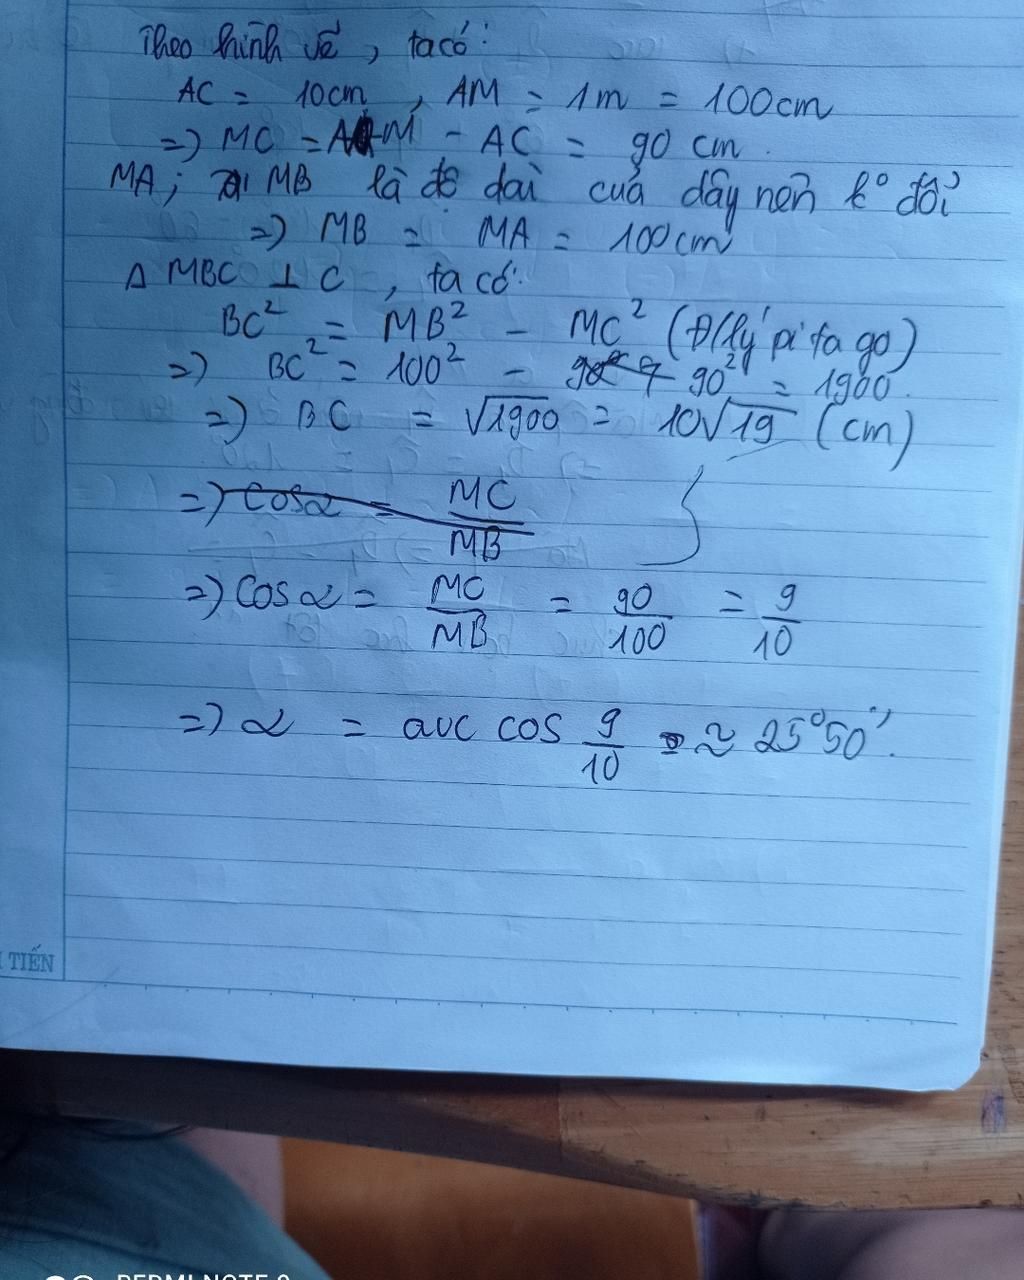 Theo hình vẽ, ta có:
AC = 10cm, AM = 1m = 100cm
=> MC = AM - AC = 90 cm.
MA; MB là độ dài của dây nên k° đổi
=> MB = MA = 100cm
Δ MBC ⊥ C, ta có:
BC² = MB² - MC² (Đ/lý pi ta go)
=> BC² = 100² - 90² = 1900.
=> BC = √1900 = 10√19 (cm)
=> cosα = MC/MB
=> Cos α = MC/MB = 90/100 = 9/10
=> α = arc cos 9/10 ≈ 25°50'.
TIẾN